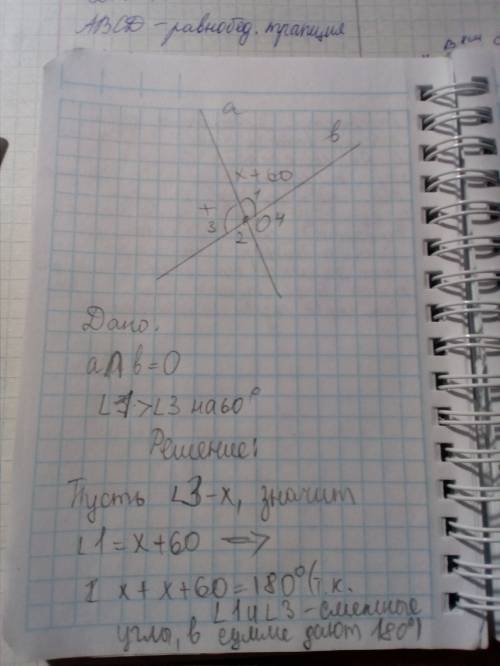 ABCD - равнобед. трапеция
a
в
x+60
1
x
3
O
4
2
Дано.
a∩в=O
∠1>∠3 на 60°
Решение:
Пусть ∠3-x, значит
∠1=x+60 ⇒
I x+x+60=180° (т.к.
∠1 и ∠3 - смежные
углы, в сумме дают 180°)